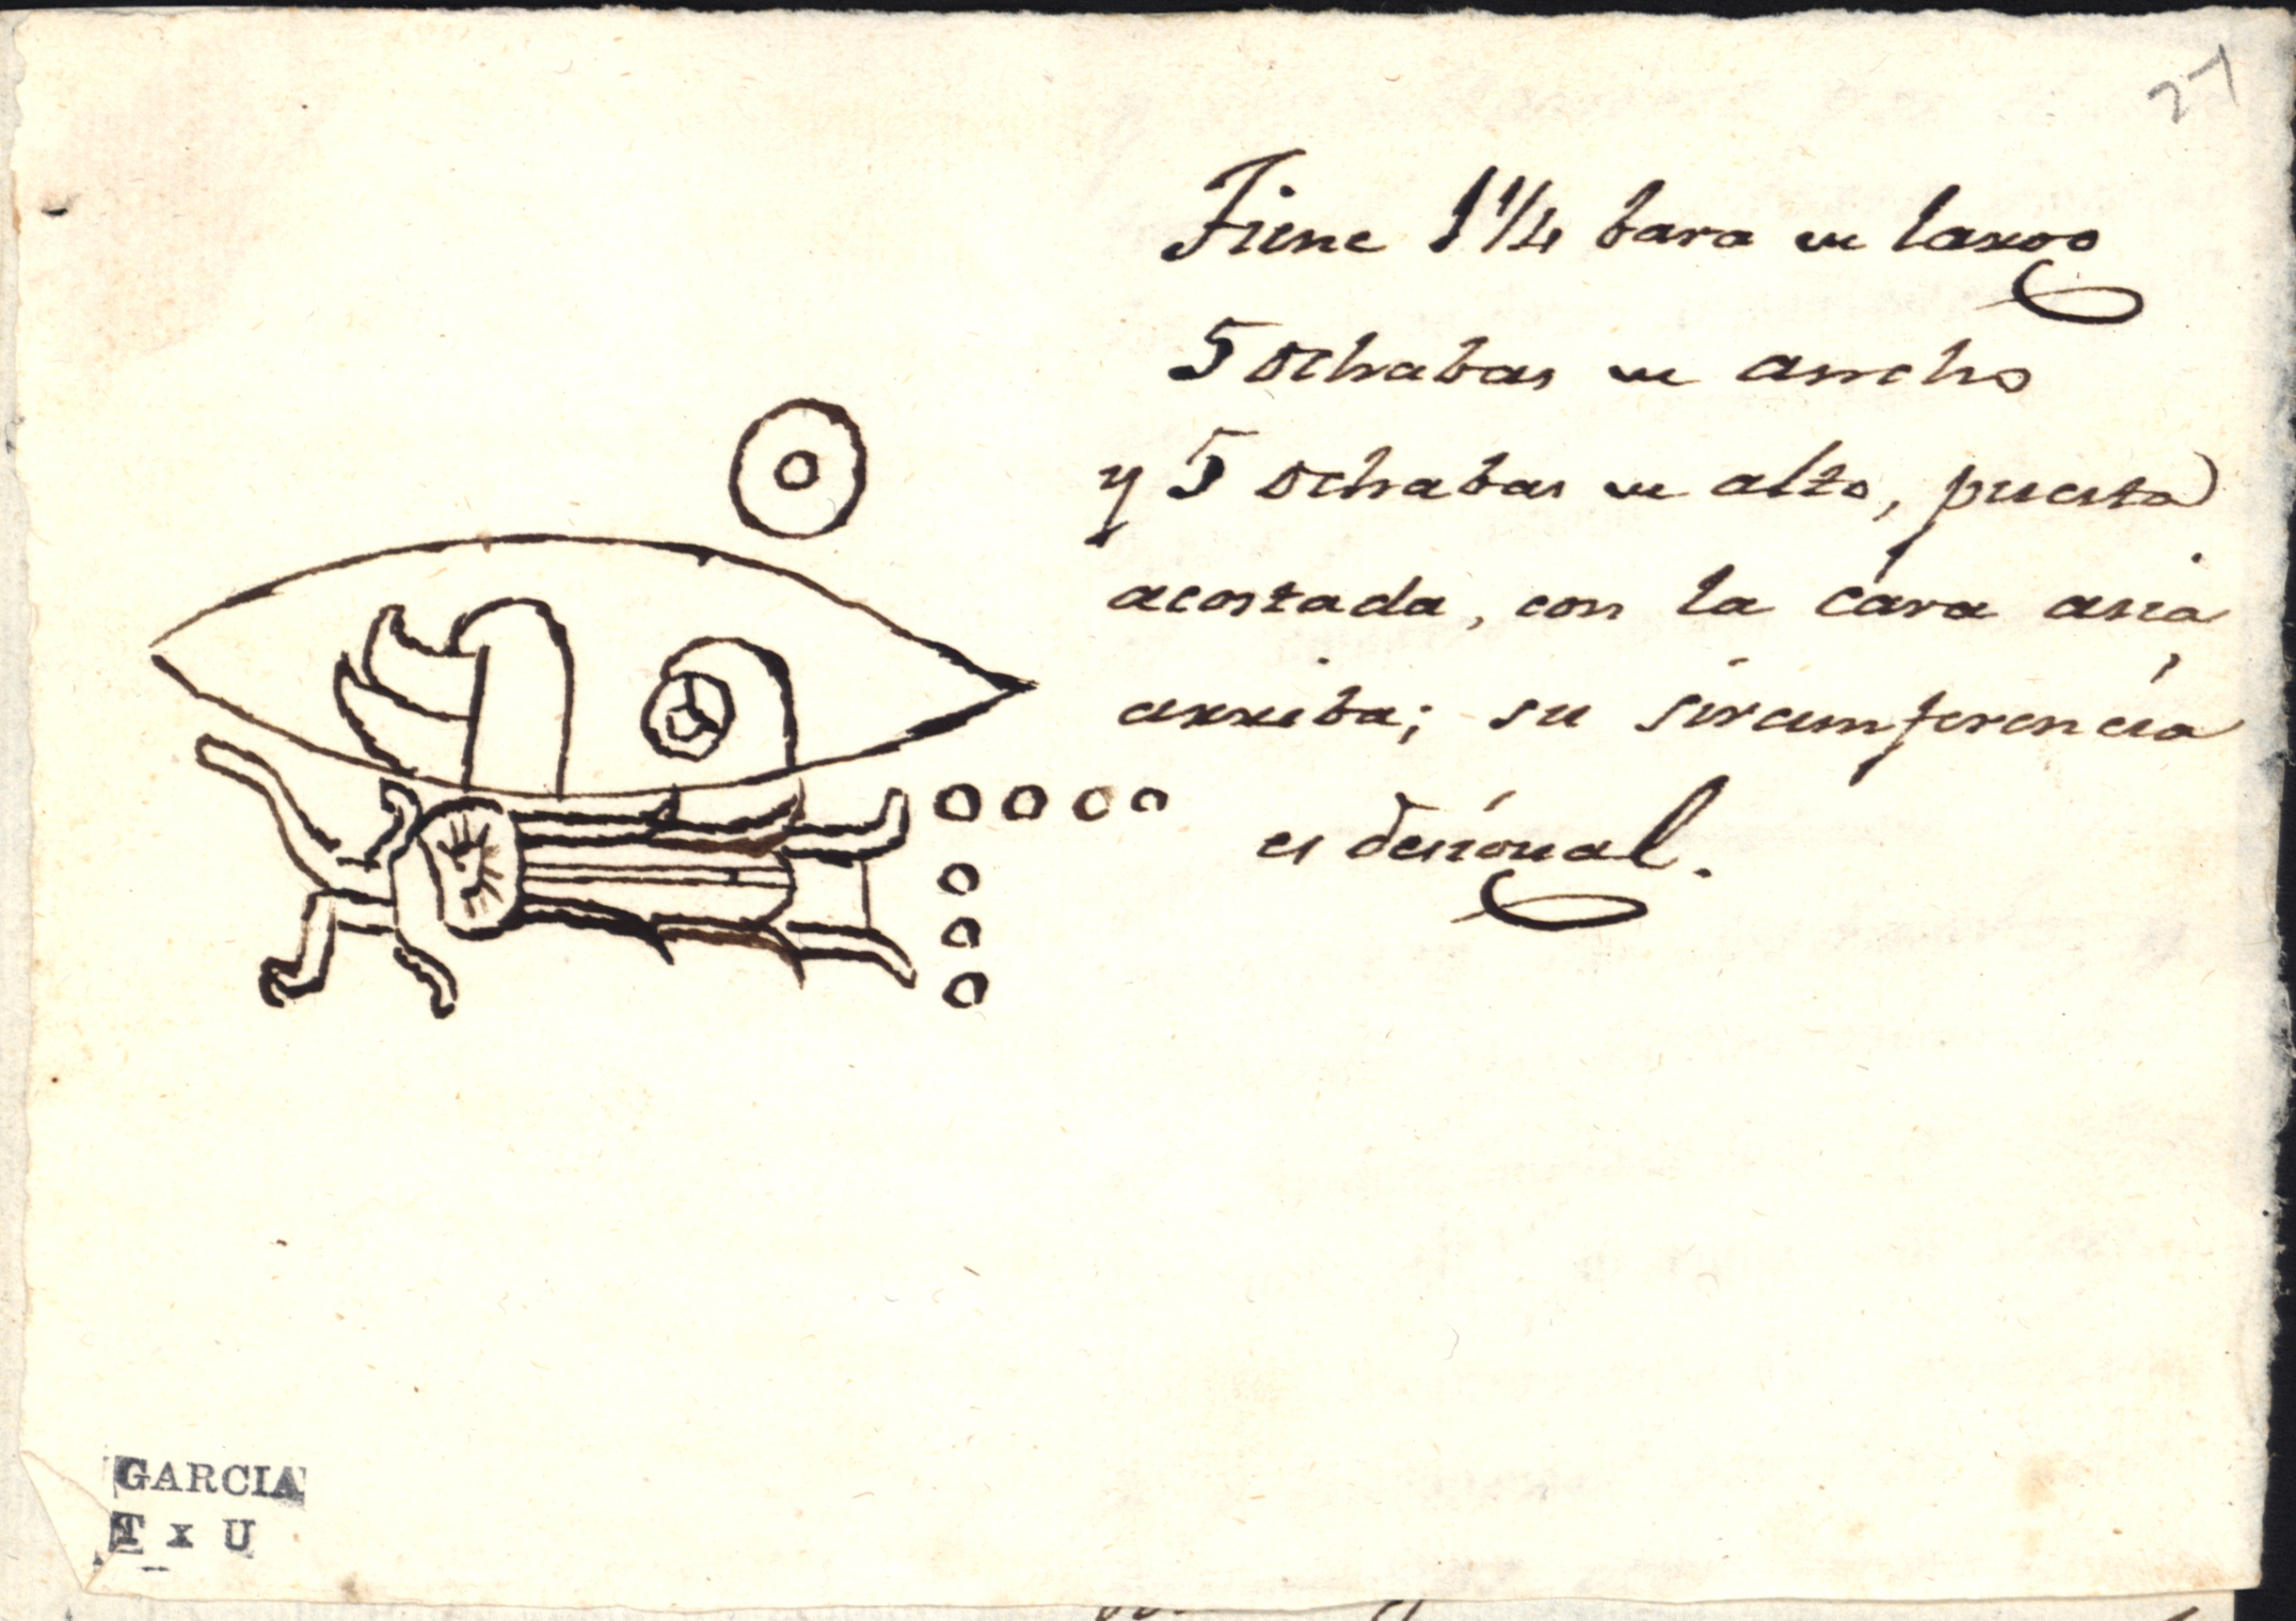 27
Tiene 1 1/4 bara de largo
5 ochabas de ancho
y 5 ochabas de alto, puesta
acostada, con la cara asia
arriba; su sircumferencia
es desigual.
GARCIA
T x U